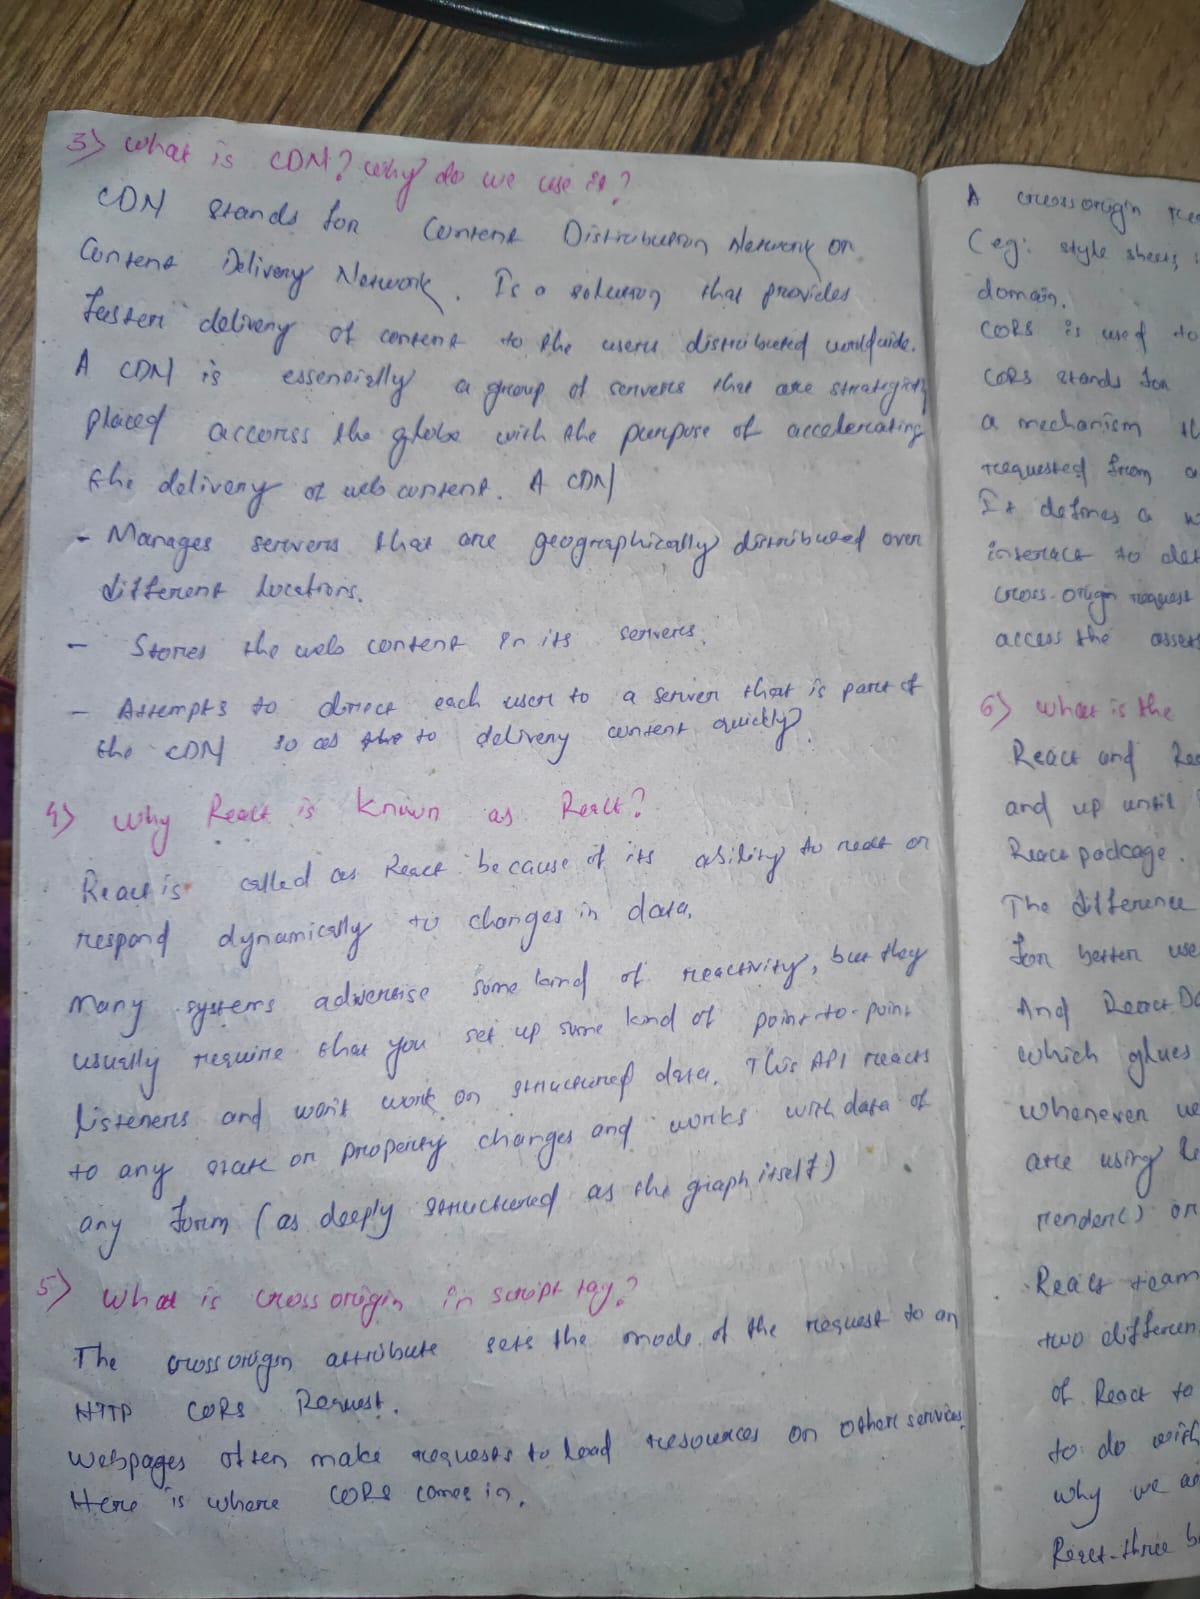 3) What is CDN? Why do we use it?
CDN stands for Content Distribution Network or
Content Delivery Network. Is a solution that provides
faster delivery of content to the users distributed worldwide.
A CDN is essencially a group of servers that are strategicly
placed accorss the globe with the purpose of accelerating
the delivery of web content. A CDN
- Manages servers that are geographically distributed over
different locations.
- Stores the web content in its servers.
- Attempts to direct each user to a server that is part of
the CDN so as to delivery content quickly.
4) Why React is known as React?
React is called as React because of its ability to react or
respond dynamically to changes in data.
Many systems advertise some kind of reactivity, but they
usually require that you set up some kind of point-to-point
listeners and won't work on structured data. This API reacts
to any state or property changes and works with data of
any form (as deeply structured as the graph itself)
5) What is crossorigin in script tag?
The crossorigin attribute sets the mode of the request to an
HTTP CORS Request.
Webpages often make requests to load resources on other services.
Here is where CORS comes in.
A crossorigin
(eg: style sheets,
domain.
CORS is used to
CORS stands for
a mechanism
requested from
It defines a
interact to
cross-origin request
access the
6) What is the
React and
and up until
React package.
The difference
for better use
And
which glues
whenever
are using
render() or
React team
two
of React to
to do with
why we
React-three